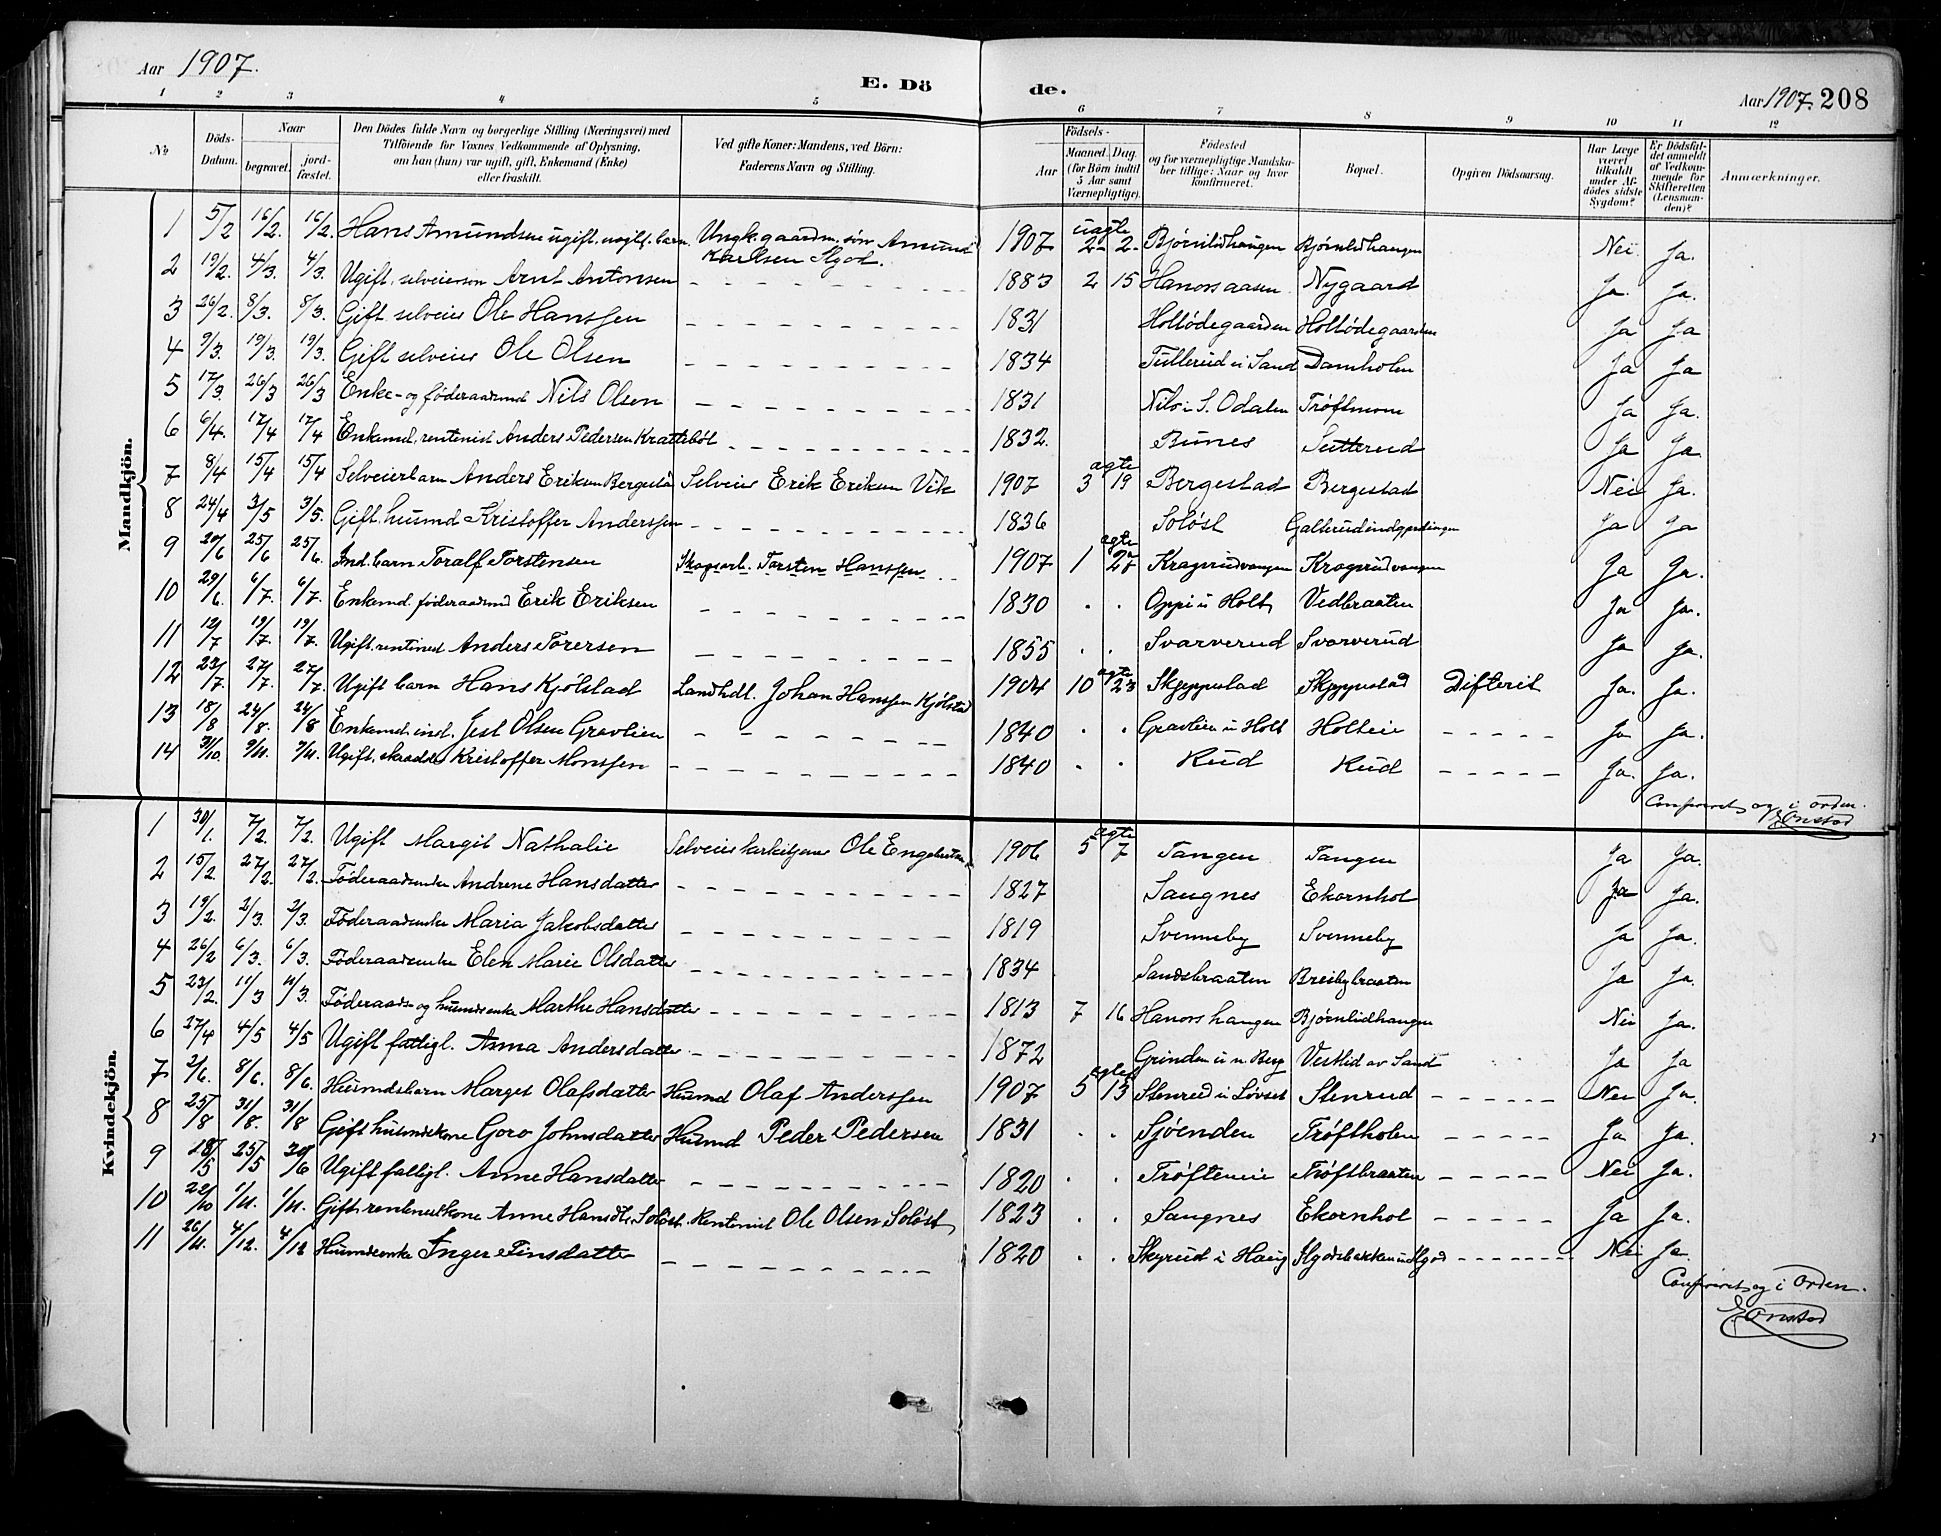 Aar 1907.
E. Dö
de.
Aar 1907. 208
1 2 3 4 5 6 7 8 9 10 11 12
No
Döds-Datum.
Naar
begravet.
jord-fæstet.
Den Dödes fulde Navn og borgerlige Stilling (Næringsvei) med
Tilföiende for Voxnes Vedkommende af Oplysning,
om han (hun) var ugift, gift, Enkemand (Enke)
eller fraskilt.
Ved gifte Koner: Mandens, ved Börn:
Faderens Navn og Stilling.
Födsels-
Aar
Maaned. Dag.
(for Börn indtil
5 Aar samt
Værnepligtige).
Födested
og for værnepligtige Mandska-
ber tillige: Naar og hvor
konfirmeret.
Bopæl.
Opgiven Dödsaarsag.
Har Læge
været
tilkaldt
under Af-
dödes sidste
Sygdom?
Er Dödsfal-
det anmeldt
af Vedkom-
mende for
Skifteretten
(Lensman-
den)?
Anmærkninger.
Mandkjön.
1 5/2 16/2. 16/2. Hans Amundsen ugift. uægte. barn. Ungk. gaardm. søn Amund Slgod. 1907 uægte 2- 2- Bjørnlidhaugen Bjørnlidhaugen Nei. Ja.
2 19/2. 4/3. 4/3. Ugift. selveiersøn Arnt Antonsen - - - 1883 2 15 Hanorsaasen Nygaard Ja. Ja.
3 26/2. 8/3. 8/3. Gift selveier Ole Hanssen - - - 1831 Holtødegaarden Holtødegaarden Ja Ja
4 9/3. 19/3. 19/3. Gift selveier Ole Olsen - - - 1834 Tullerud i Sand Damholen Ja Ja
5 17/3. 26/3 26/3 Enke- og føderaadsmd Nils Olsen - - - 1831 Nilo i S. Odalen Trøftmoen Ja Ja.
6 6/4. 17/4 17/4 Enkemd. rentenist Anders Pedersen Krattebøl - - - 1832. Bunes Sutterud Ja Ja
7 8/4 15/4 15/4 Selveierbarn Anders Eriksen Bergestad Selveier Erik Eriksen Vik 1907 3 ægte 19 Bergestad Bergestad Nei Ja.
8 24/4 3/5 3/5. Gift. husmd Kristoffer Anderssen - - - 1836 Soløst Ja Ja
9 20/6 25/6 25/6. Ind. barn Toralf Torstensen Skogsarb. Torsten Hanssen 1907 1 ægte 28 Kragerudvangen Kragerudvangen Ja Ja.
10 29/6. 6/7. 6/7. Enkemd. føderaadsmd Erik Eriksen - - - 1830 . . Oppi u Holt, Vedbraaten Ja Ja.
11 12/7 19/7. 19/7. Ugift. rentinist Anders Torersen - - - 1855 . . Svarverud Svarverud Ja Ja.
12 23/7. 27/7. 27/7. Ugift barn Hans Kjølstad Landhdl. Johan Hanssen Kjølstad 1904 10 ægte 23 Skjeppestad Skjeppestad Difterit Ja. Ja.
13 18/8 24/8. 24/8 Enkemd. ind. Jest Olsen Gravlien - - - 1840 . . Gravlien u Holt Holteie - - - Ja Ja.
14 31/10. 9/11. 9/11. Ugift. skrædder Kristoffer Monssen - - - 1840 . . Rud Rud - - - Ja. Ja.
Confereret og i orden.
E. Onstad
Kvindekjön.
1 30/1. 7/2. 7/2. Ugift Margit Nathalie Ole 1906 5 ægte 7 Tangen Tangen Ja Ja.
2 15/2. 27/2. 27/2. Føderaadsenke Andrene Hansdatter - - - 1827 Saugnes Ekornhol Ja Ja.
3 19/2. 2/3. 2/3. Føderaadsenke Maria Jakobsdatter - - - 1819 Svenneby Svenneby Ja Ja.
4 26/2 6/3. 6/3. Føderaadsenke Elen Marie Olsdatter - - - 1834 Sandsbraaten Breibybraaten Ja Ja.
5 23/2. 11/3 11/3. Føderaads- og husmdsenke Marthe Hansdatter - - - 1813 7 16 Hanorshaugen Bjørnlidhaugen Nei Ja.
6 27/4 4/5 4/5 Ugift fattigl. Anna Andersdatter - - - 1872 Grinden u n Berg Vestlid av Sand Ja Ja
7 2/6. 8/6. 8/6. Husmdsbarn Marget Olafsdatter Husmd Olaf Anderssen 1907 5 ægte 13 Stenrud u Løvset Stenrud - - - Nei Ja.
8 25/8 31/8. 31/8 Gift husmdskone Goro Johnsdatter Husmd Peder Pedersen 1831 . . Sjøenden Trøftholen - - - Ja Ja.
9 18/5 25/5 20/6 Ugift fattigl. Anne Hansdatter - - - 1820 . . Trøfteneie Trøftbraaten - - - Nei Ja.
10 22/10 1/11. 1/11. Gift rentenistkone Anne Hansdtr. Soløst. Rentenist Ole Olsen Soløst, 1823 . . Saugnes Ekornhol - - - Ja Ja.
11 26/11. 4/12. 4/12 Husmdsenke Inger Finsdatter - - - 1820 . . Skyrud i Haug - - - Nei Ja.
Confereret og i Orden.
E. Onstad